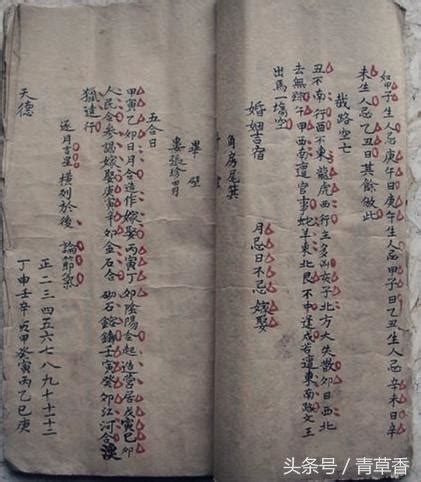 如甲子生人忌庚午日庚午生人忌甲子日乙丑生人忌辛未日辛
未生人忌乙丑日其餘倣此
截路空亡
丑不南行酉不東 龍虎西行主多凶 亥子北方大失散 卯日西北
去無踪 午甲西南遭官事 蛇羊東北艮不中 逢戌若還東南路 文王
出馬一塲空
婚姻吉宿
月忌日不忌嫁娶
角房尾箕
畢壁
婁張珍
五合日
甲寅乙卯日月合造作嫁娶丙寅丁卯陰陽合起造營居戊寅己卯
人民合參謁嫁娶庚寅辛卯金石合砌石鎔鑄壬寅癸卯江河合
獵達行
逐月吉星橫列於後 論節氣
正二三四五六七八九十十一十二
天德
丁申壬辛亥甲癸寅丙乙巳庚
头条号／青草香